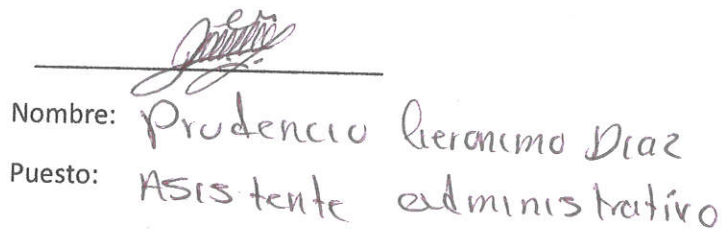 Nombre: Prudencio Geronimo Diaz
Puesto: Asistente administrativo